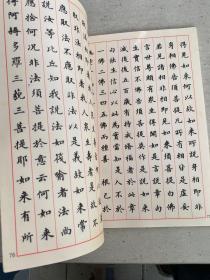 得見如來何以故如來所說身相即非
身相佛告須菩提凡所有相皆是虛妄
若見諸相非相則見如來須菩提白佛
言世尊頗有眾生得聞如是言說章句
生實信不佛告須菩提莫作是說如來
滅後後五百歲有持戒修福者於此章
句能生信心以此為實當知是人不於
一佛二佛三四五佛而種善根已於
應取法不應取非法以是義故如來常
說汝等比丘知我說法如筏喻者法尚
應捨何況非法須菩提於意云何如來
得阿耨多羅三藐三菩提耶如來有所